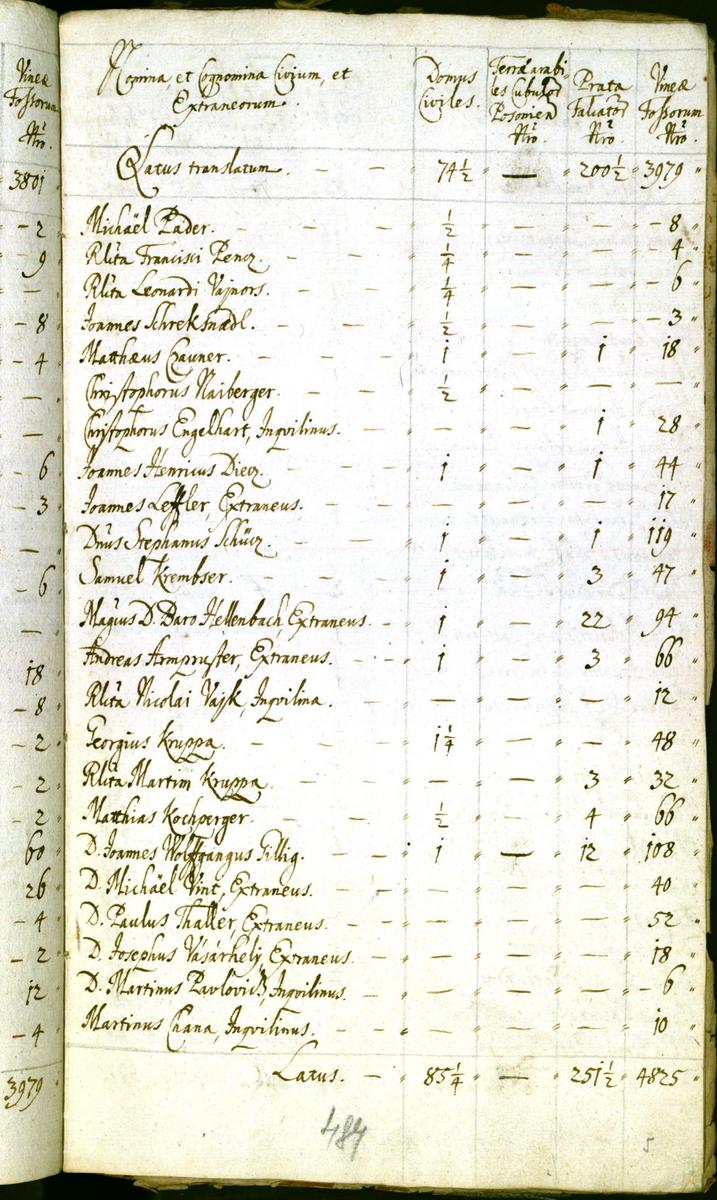 Vineæ
Fossorum
Nro.
3801
- 2
- 9
—
- 8
- 4
—
—
- 6
- 3
—
- 6
—
18
- 8
- 2
- 2
- 2
60
26
- 4
- 2
12
- 4
3979
Nomina, et Cognomina Civium, et Extraneorum. Domus Civiles. Terræ arabiles Cubulor Posonien Nro. Prata Falcator Nro. Vineæ Fossorum Nro.
Latus translatum. — — 74½ — 200½ 3979
Michaël Pader. — — ½ — — 8
Rlita Francisci Pencz. — — ¼ — — 4
Rlita Leonardi Vajnors. — — ¼ — — 6
Joannes Schreksnadl. — — ½ — — 3
Matthæus Gauner. — — 1 — 1 18
Christophorus Naiberger. — — ½ — — —
Christophorus Engelhart, Inqvilinus. — — — 1 28
Joannes Henricus Diecz. — — 1 — 1 44
Joannes Leffler, Extraneus. — — — — 17
Dnus Stephanus Schücz. — — 1 — 1 119
Samuel Krembser. — — 1 — 3 47
Magcus D. Baro Hellenbach, Extraneus. - 1 — 22 94
Andreas Armpruster, Extraneus. - - 1 — 3 66
Rlita Nicolai Vajk, Inqvilina. — — — — 12
Georgius Kruppa. — — 1¼ — — 48
Rlita Martini Kruppa. — — — — 3 32
Matthias Kochperger. — — ½ — 4 66
D. Joannes Wolffgangus Gillig. — — 1 — 12 108
D. Michaël Vint, Extraneus. — — — — 40
D. Paulus Thaller, Extraneus. — — — — 52
D. Josephus Vásárhelÿ, Extraneus. — — — — 18
D. Martinus Pavlovich, Inqvilinus. — — — — 6
Martinus Chana, Inqvilinus. — — — — 10
Latus. — 85¼ — 251½ 4825
484
5